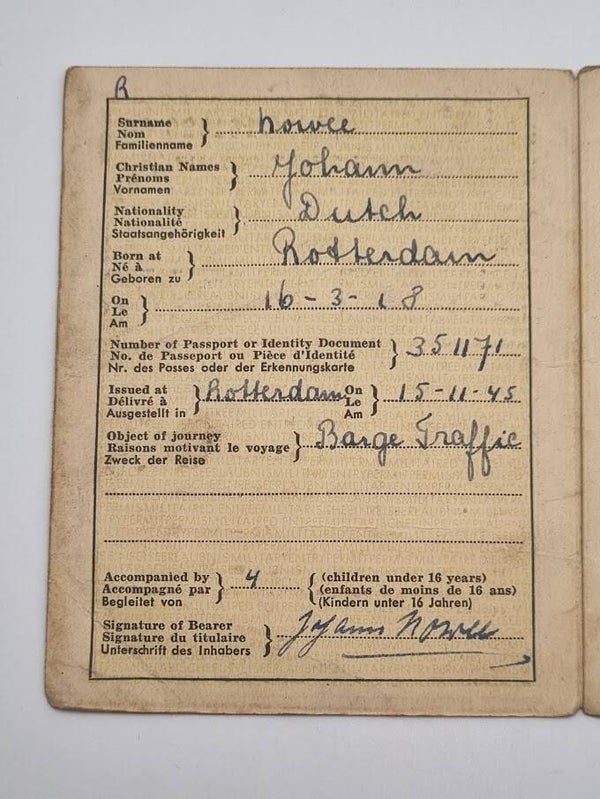 R
Surname
Nom
Familienname } Nowee
Christian Names
Prénoms
Vornamen } Johann
Nationality
Nationalité
Staatsangehörigkeit } Dutch
Born at
Né à
Geboren zu } Rotterdam
On
Le
Am } 16-3-18
Number of Passport or Identity Document
No. de Passeport ou Pièce d'Identité
Nr. des Passes oder der Erkennungskarte } 351171
Issued at
Délivré à
Ausgestellt in } Rotterdam On
Le
Am } 15-11-45
Object of journey
Raisons motivant le voyage
Zweck der Reise } Barge Traffic
Accompanied by
Accompagné par
Begleitet von } 4 { (children under 16 years)
(enfants de moins de 16 ans)
(Kindern unter 16 Jahren)
Signature of Bearer
Signature du titulaire
Unterschrift des Inhabers } Johann Nowee